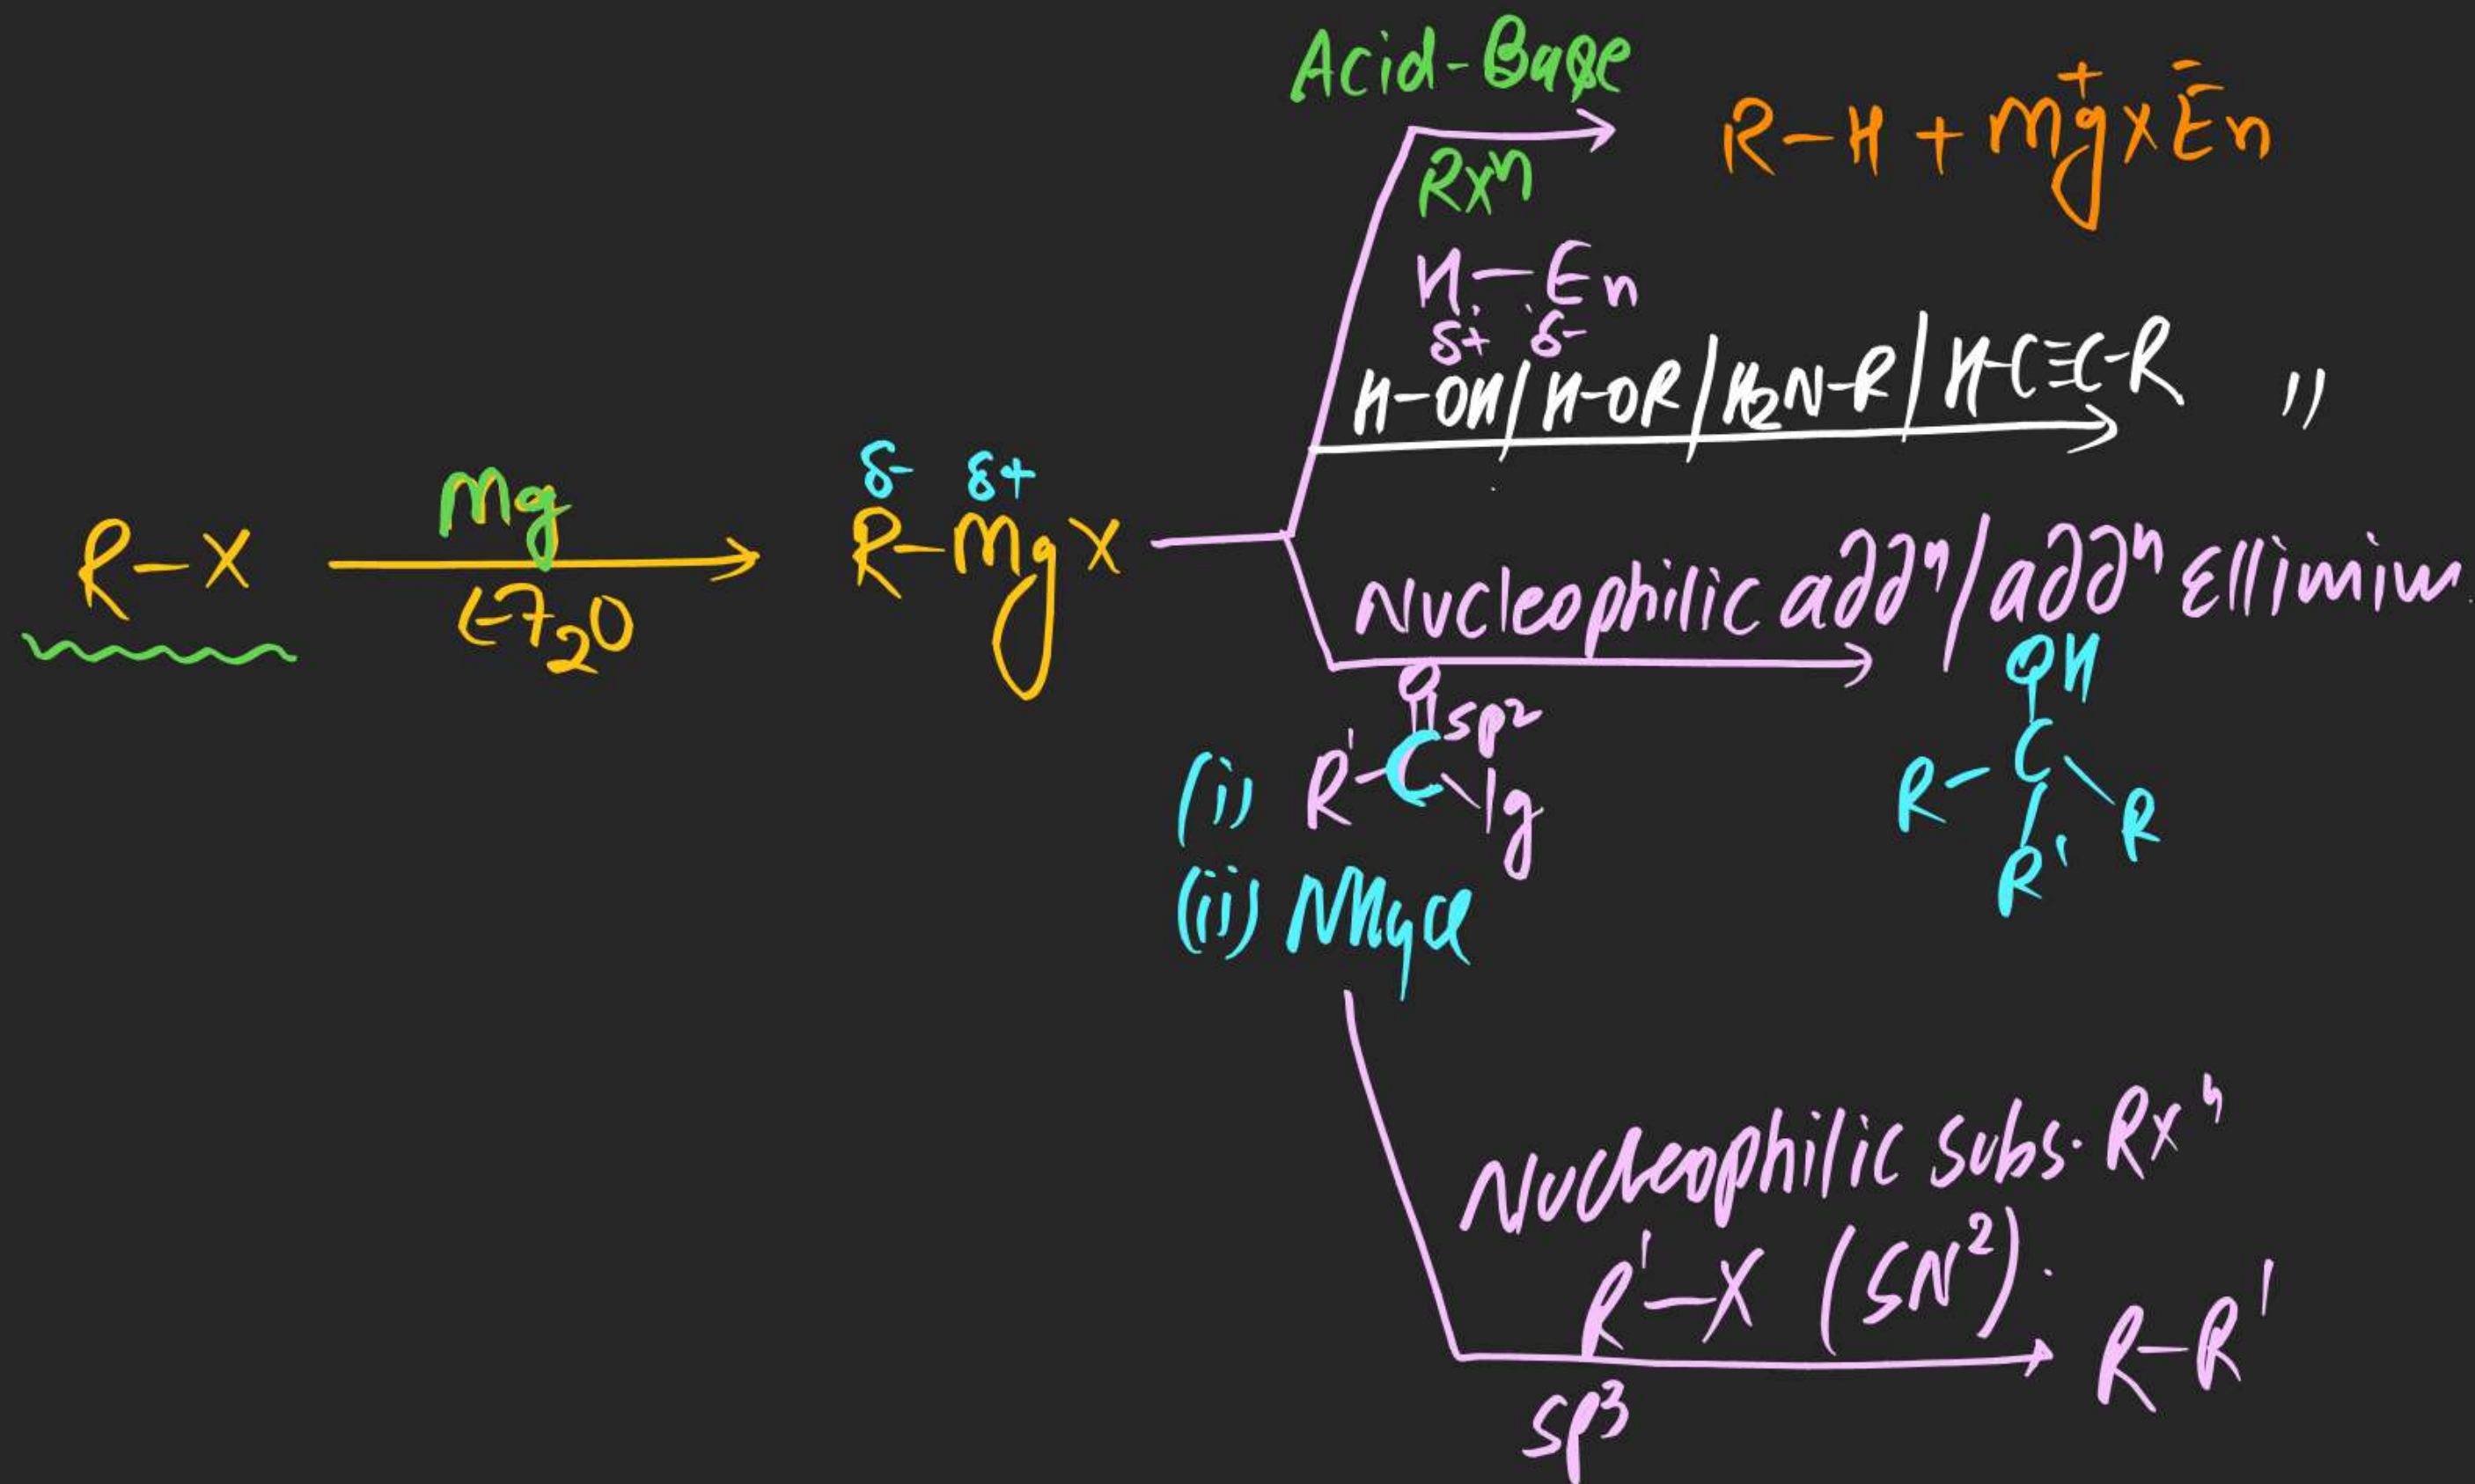 Acid-Base
Rxⁿ
R-H + Mg⁺X E̅n⁻
H-En
δ+ δ-
H-OH/H-OR/H₂N-R/H-C≡C-R "
R-X
Mg
Et₂O
δ- δ+
R-MgX
Nucleophilic addⁿ/addⁿ Ellimiw.
O
sp²
R'-C-lg
(i)
(ii)
OH
R-C-R
R'
Nucleophilic subs. Rxⁿ
R'-X (SN²).
sp³
R-R'